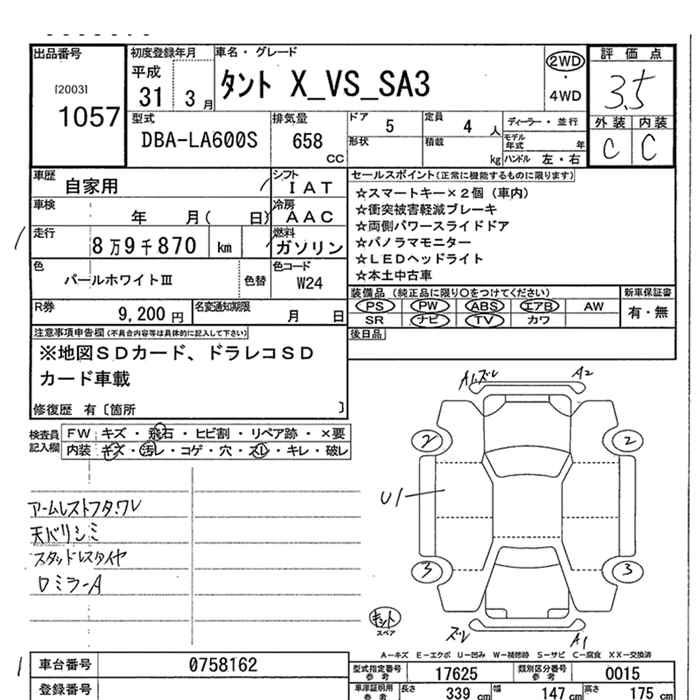 出品番号
[2003]
1057
初度登録年月
平成
31 3月
車名・グレード
タント X_VS_SA3
2WD
・
4WD
評価点
3.5
外装 内装
C C
型式
DBA-LA600S
排気量
658
CC
ドア
5
定員
4 人
形状
積載
kg
ディーラー・並行
モデル年式 年
ハンドル 左・右
車歴
自家用
シフト
IAT
車検
年 月( 日)
冷房
AAC
走行
8万9千870 km
燃料
ガソリン
色
パールホワイトIII
色替
色コード
W24
R券
9,200円
名変通知期限
月 日
セールスポイント(正常に機能するものに限ります)
☆スマートキー×2個(車内)
☆衝突被害軽減ブレーキ
☆両側パワースライドドア
☆パノラマモニター
☆LEDヘッドライト
☆本土中古車
装備品(純正品に限り○をつけてください)
新車保証書
PS PW ABS エアB AW
SR ナビ TV カワ
有・無
後日品
注意事項申告欄(不具合内容等は具体的に記入して下さい)
※地図SDカード、ドラレコSD
カード車載
修復歴 有〔箇所 〕
検査員記入欄
FW キズ・飛石・ヒビ割・リペア跡・×要
内装 キズ・汚レ・コゲ・穴・スレ・キレ・破レ
アームレストフタワレ
天バリシミ
スタッドレスタイヤ
ロミラーA
Aムズレ
A2
2
2
U1
3
3
キット
スペア
ズレ
A1
A—キズ E—エクボ U—凹み W—補修跡 S—サビ C—腐食 XX—交換済
車台番号
0758162
登録番号
型式指定番号
参考
17625
類別区分番号
参考
0015
車庫証明用
参考
長さ
339 cm
幅
147 cm
高さ
175 cm